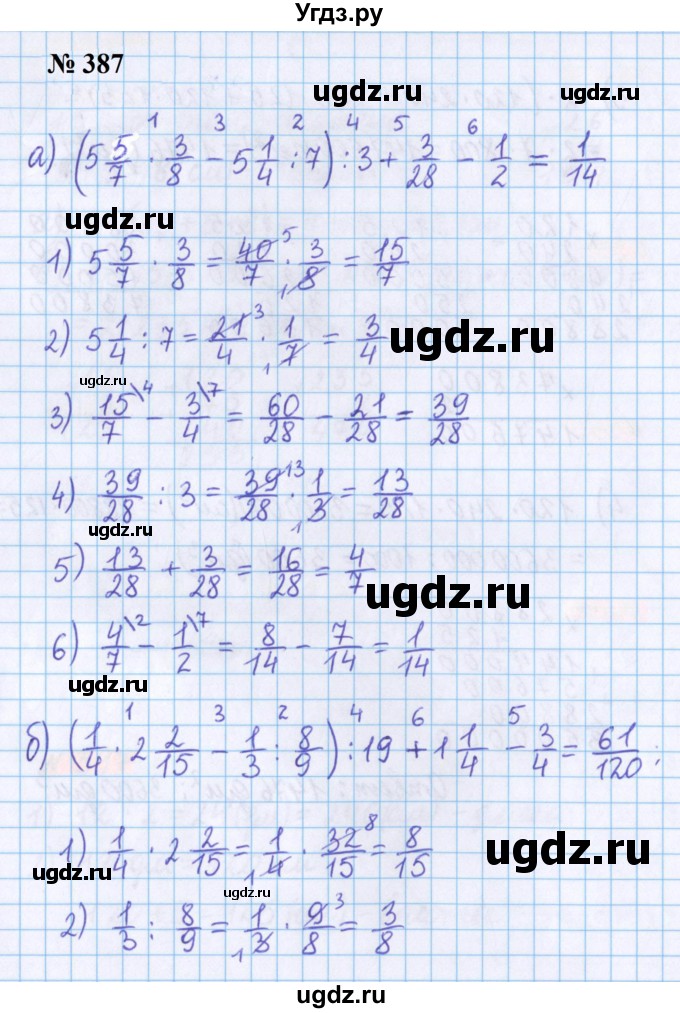 Угдз.ру
№ 387
ugdz.ru
1 3 2 4 5 6
а) (5 5/7 · 3/8 − 5 1/4 : 7) : 3 + 3/28 − 1/2 = 1/14
ugdz.ru
1) 5 5/7 · 3/8 = 40/7 5 · 3/8 1 = 15/7
2) 5 1/4 : 7 = 21/4 3 · 1/7 1 = 3/4
ugdz.ru
ugdz.ru
3) 15/7 \4 − 3/4 \7 = 60/28 − 21/28 = 39/28
4) 39/28 : 3 = 39/28 13 · 1/3 1 = 13/28
ugdz.ru
5) 13/28 + 3/28 = 16/28 = 4/7
ugdz.ru
6) 4/7 \2 − 1/2 \7 = 8/14 − 7/14 = 1/14
ugdz.ru
1 3 2 4 6 5
б) (1/4 · 2 2/15 − 1/3 : 8/9) : 19 + 1 1/4 − 3/4 = 61/120;
1) 1/4 · 2 2/15 = 1/4 1 · 32/15 8 = 8/15
ugdz.ru
ugdz.ru
ugdz.ru
2) 1/3 : 8/9 = 1/3 1 · 9/8 3 = 3/8
ugdz.ru